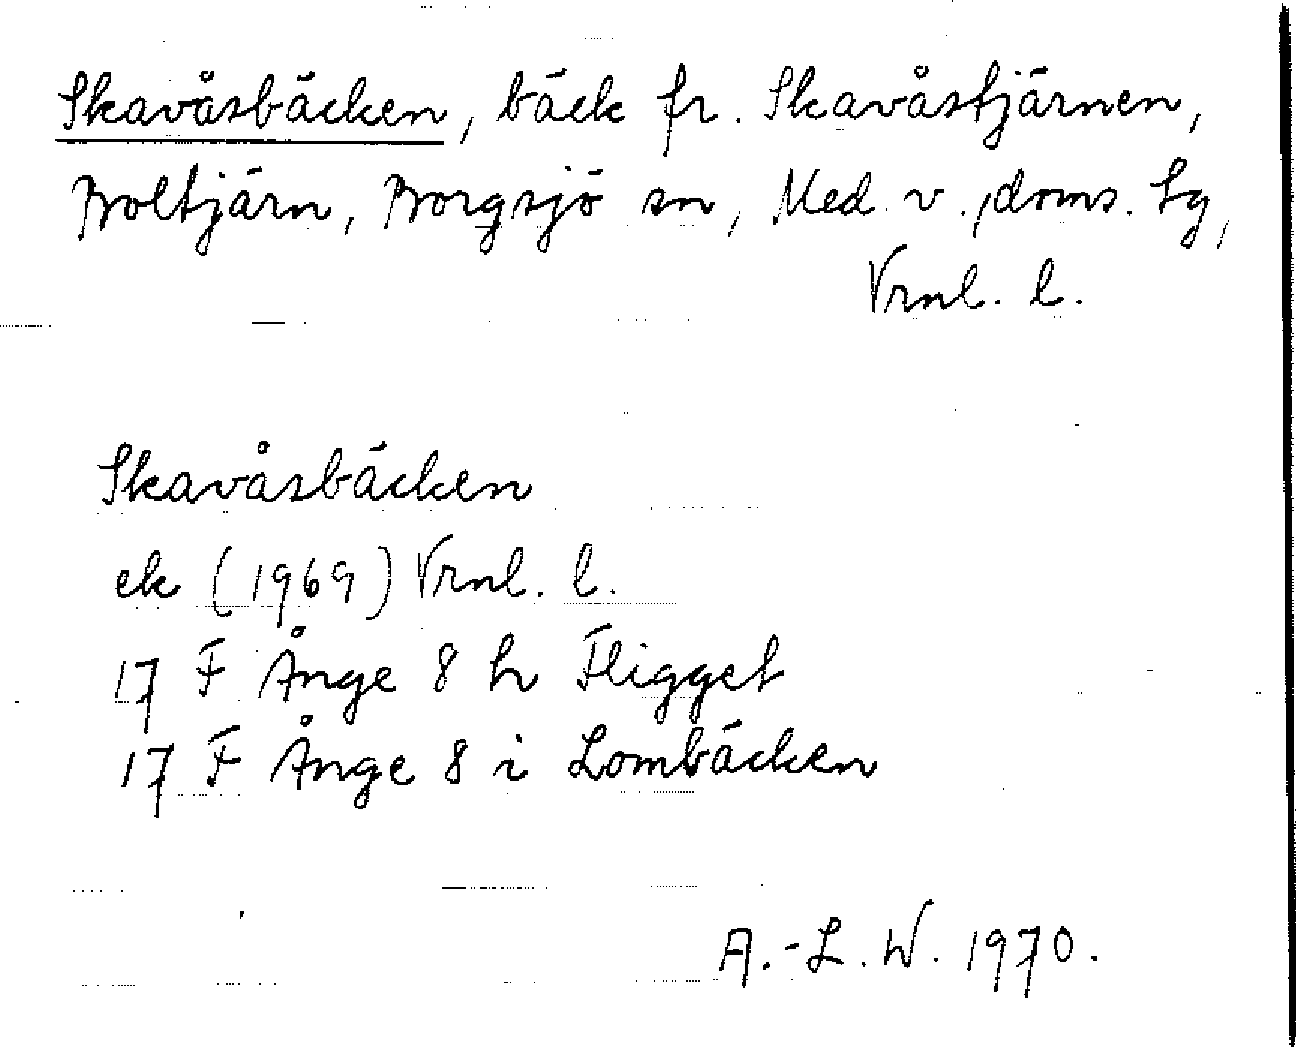 Skavåsbäcken, bäck fr. Skavåstjärnen,
Boltjärn, Borgsjö sn, Med. v., doms. sg,
Vrnl. l.
Skavåsbäcken
ek (1969) Vrnl. l.
17 F Ånge 8 h Fligget
17 F Ånge 8 i Lombäcken
A.-L. W. 1970.